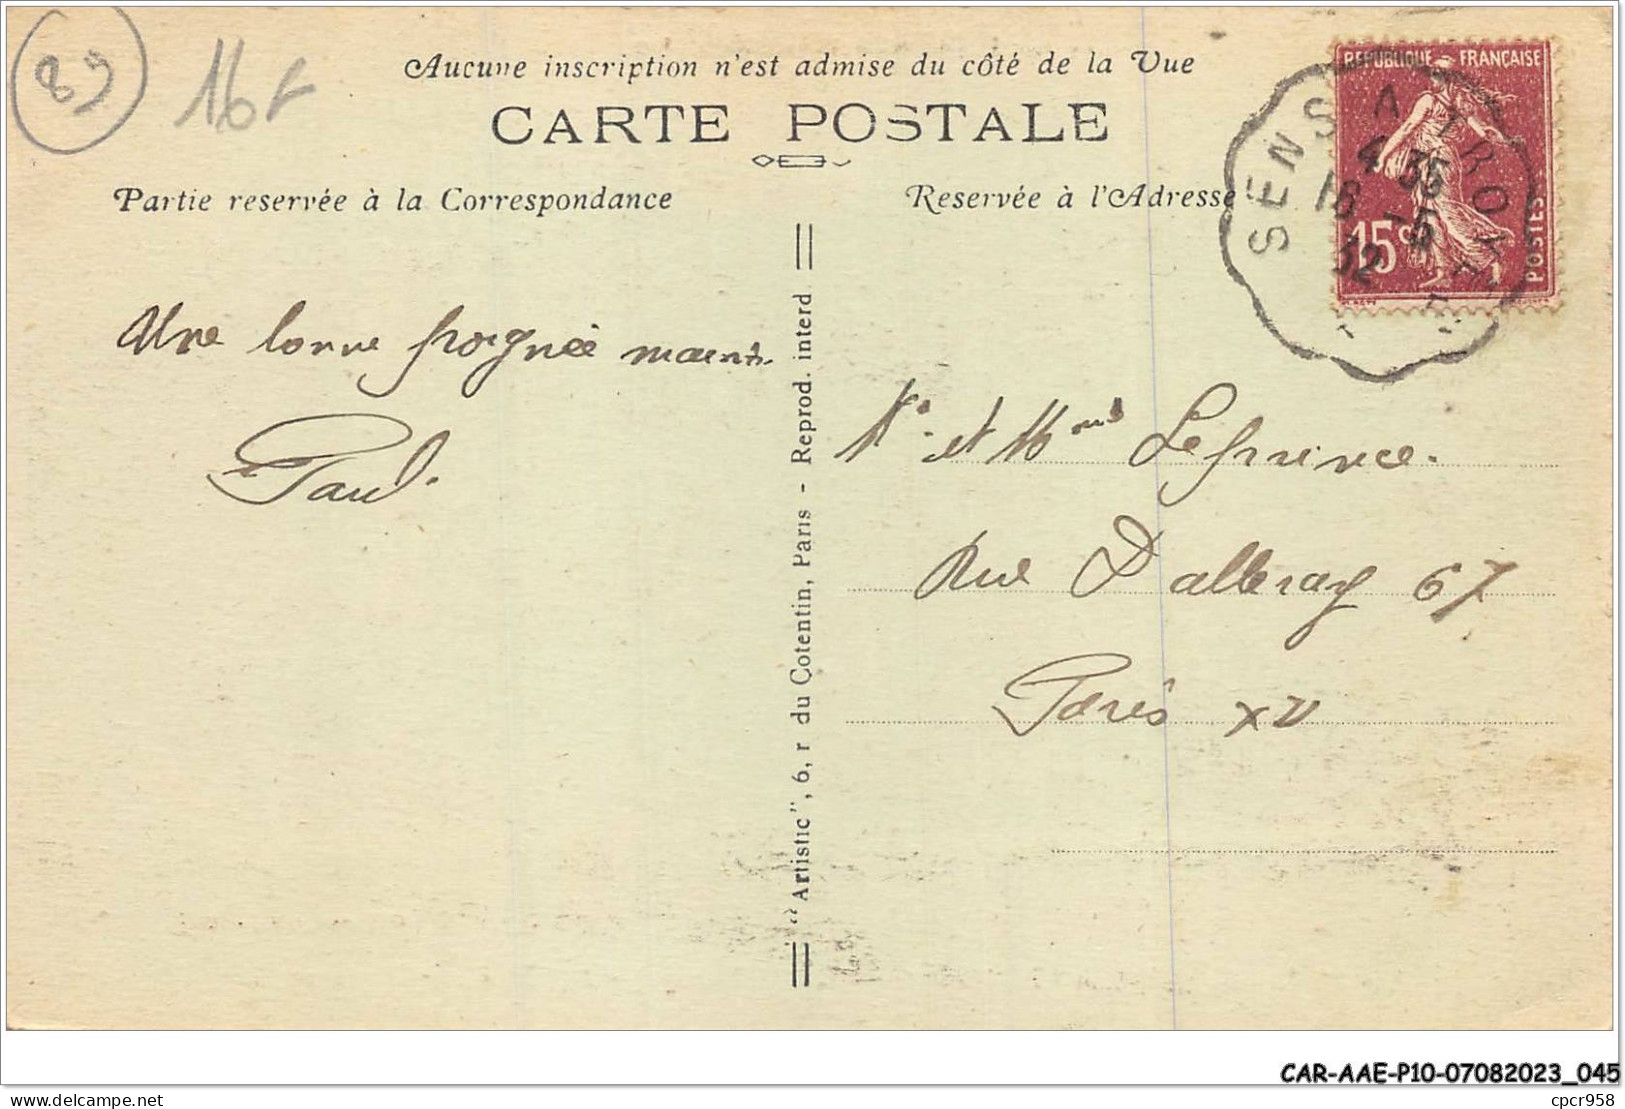 89
16F
Aucune inscription n'est admise du côté de la Vue
CARTE POSTALE
Partie reservée à la Correspondance
Reservée à l'Adresse
REPUBLIQUE FRANÇAISE
15c
POSTES
SENS A TROYES
4 35
18 -5
32
Une bonne poignée
Paul.
Mr. et Mme Leprince.
Rue Dalleray 67
Paris XV
"Artistic", 6, r du Cotentin, Paris - Reprod. interd
CAR-AAE-P10-07082023_045
cpcr958